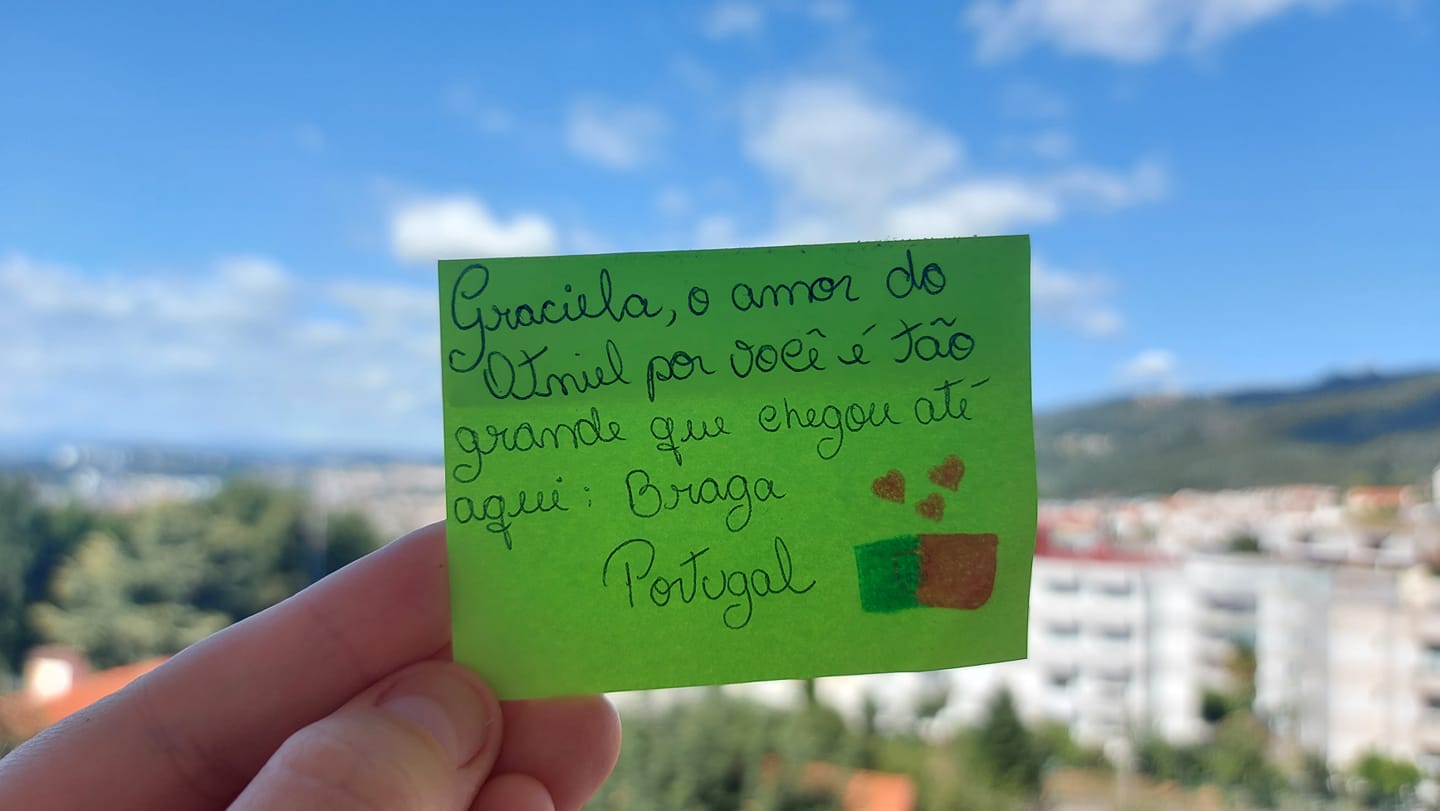 Graciela, o amor do
Otniel por você é tão
grande que chegou até
aqui: Braga
Portugal